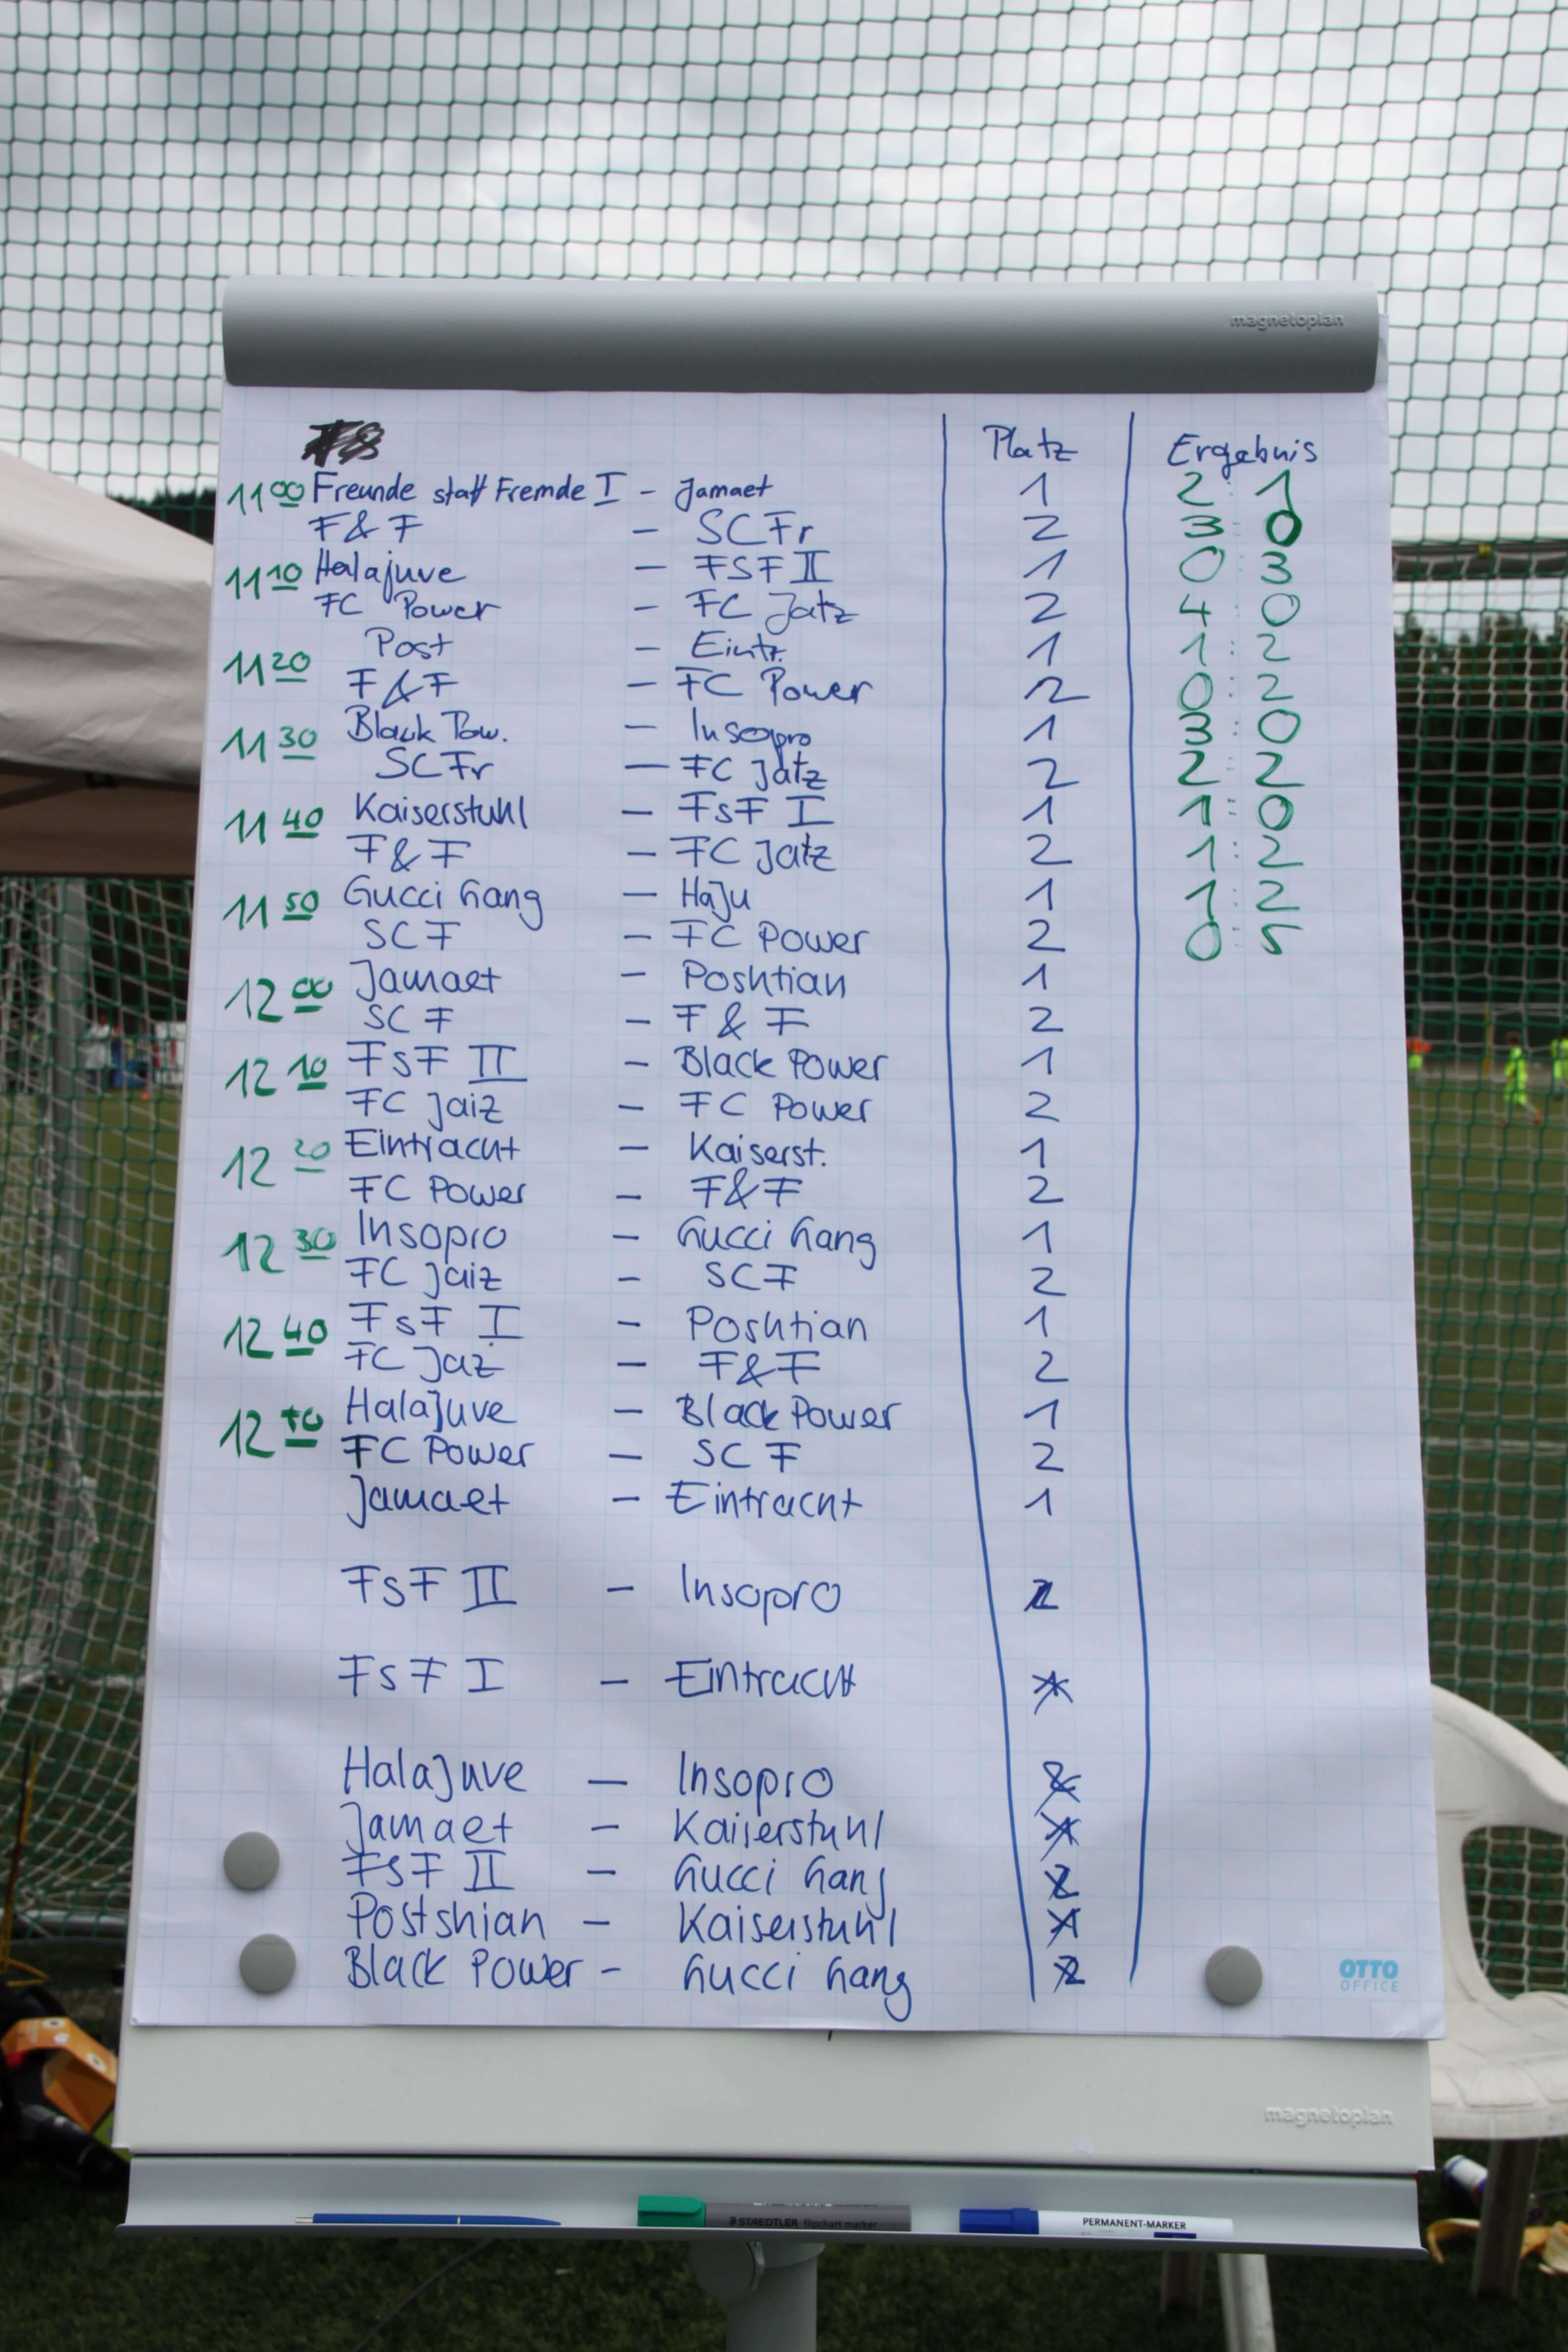 magnetoplan
Platz Ergebnis
11 00 Freunde statt Fremde I - Jamaet 1 2 : 1
F & F - SCFr 2 3 : 0
11 10 Halajuve - FSF II 1 0 : 3
FC Power - FC Jatz 2 4 : 0
11 20 Post - Eintr. 1 1 : 2
F & F - FC Power 2 0 : 2
11 30 Black Pow. - Insopro 1 3 : 0
SCFr - FC Jatz 2 2 : 2
11 40 Kaiserstuhl - FsF I 1 1 : 0
F & F - FC Jatz 2 1 : 2
11 50 Gucci Gang - HaJu 1 1 : 2
SCF - FC Power 2 0 : 5
12 00 Jamaet - Poshtian 1
SCF - F & F 2
12 10 FsF II - Black Power 1
FC Jaiz - FC Power 2
12 20 Eintracht - Kaiserst. 1
FC Power - F&F 2
12 30 Insopro - Gucci Gang 1
FC Jaiz - SCF 2
12 40 FsF I - Poshtian 1
FC Jaz - F&F 2
12 Halajuve - Black Power 1
FC Power - SCF 2
Jamaet - Eintracht 1
FsF II - Insopro
FsF I - Eintracht
Halajuve - Insopro
Jamaet - Kaiserstuhl
FsF II - Gucci Gang
Postshian - Kaiserstuhl
Black Power - Gucci Gang
OTTO
OFFICE
magnetoplan
STAEDTLER flipchart marker
PERMANENT-MARKER